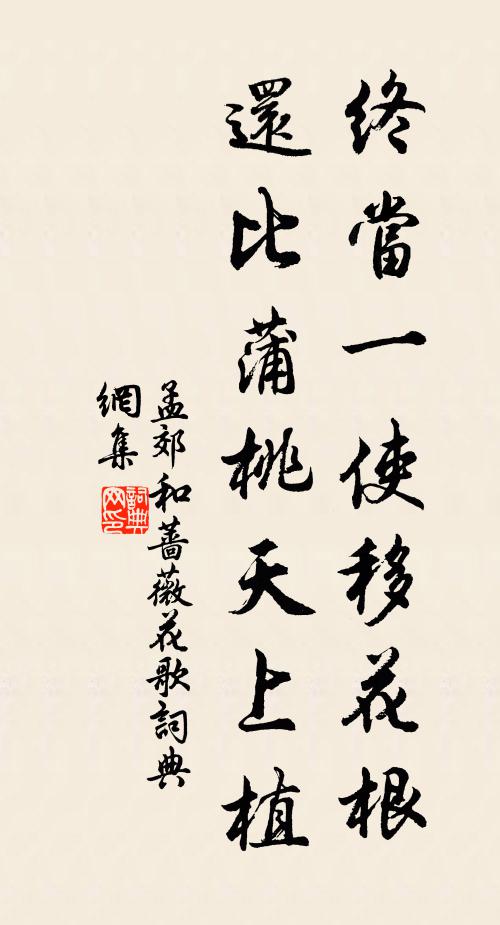 終當一使移花根
還比蒲桃天上植
孟郊和薔薇花歌詞典
網集
詞典网印